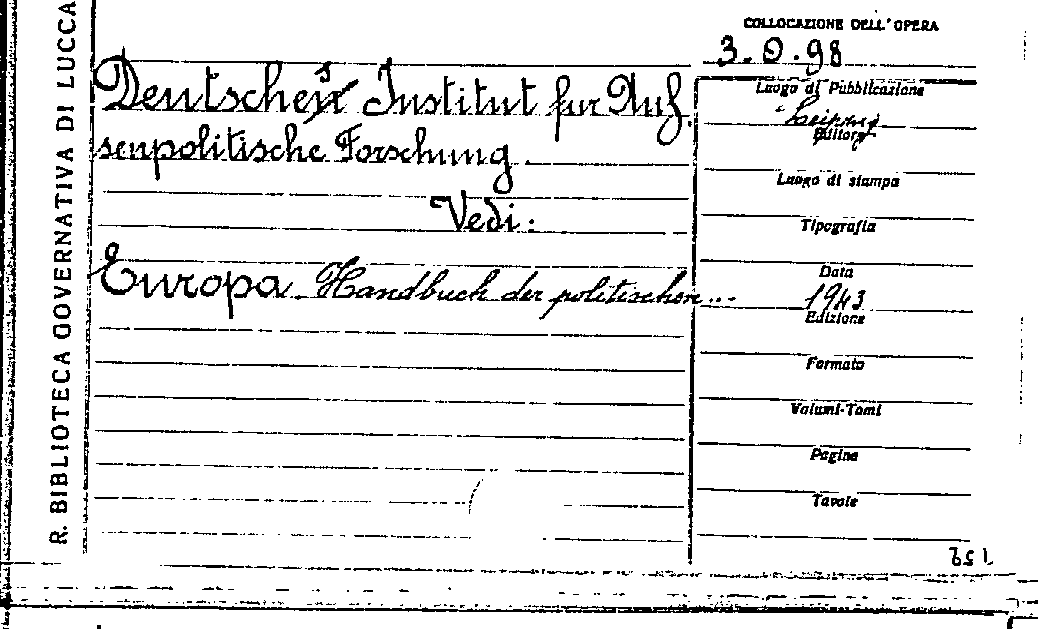 R. BIBLIOTECA GOVERNATIVA DI LUCCA
COLLOCAZIONE DELL'OPERA
3.O.98
Deutsches Institut fur Auf.
senpolitische Forschung.
Vedi:
Europa. Handbuch der politischen...
Luogo di Pubblicazione
Leipzig
Editore
Luogo di stampa
Tipografia
Data
1943
Edizione
Formato
Volumi-Tomi
Pagine
Tavole